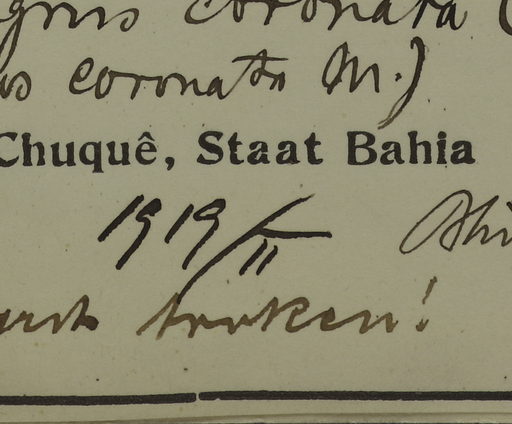 coronata (
coronata M.)
Chuquê, Staat Bahia
1919/II
trocken!